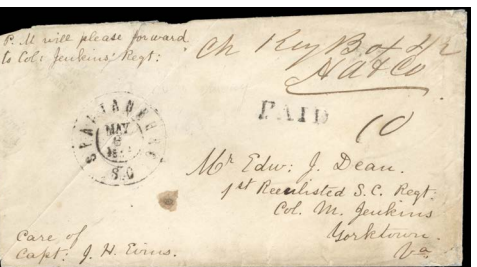 P. M will please forward
to Col: Jenkins' Regt:
Ch Key Box
PAID
10
SPARTANBURG
MAY
S.C
Mr Edw: J. Dean.
1st Reenlisted S.C. Regt:
Col. M. Jenkins
Yorktown.
Va
Care of
Capt: J. H. Evins.